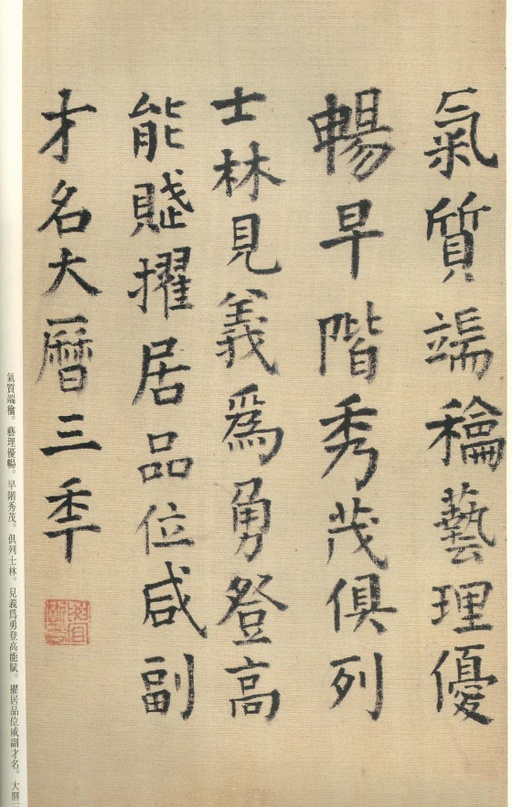 氣質端䆃藝理優
暢早階秀茂俱列
士林見義爲勇登高
能賦擢居品位咸副
才名大曆三季
氣質端䆃。藝理優暢。早階秀茂。俱列士林。見義爲勇登高能賦。擢居品位咸副才名。大曆三